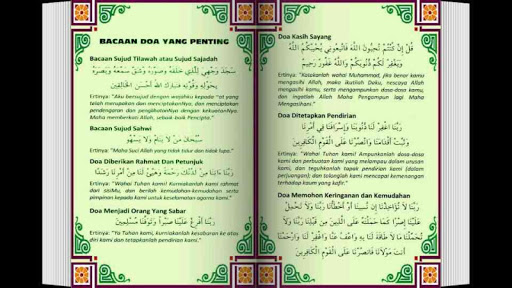 BACAAN DOA YANG PENTING
Bacaan Sujud Tilawah atau Sujud Sajadah
سَجَدَ وَجْهِيَ لِلَّذِي خَلَقَهُ وَصَوَّرَهُ وَشَقَّ سَمْعَهُ وَبَصَرَهُ
بِحَوْلِهِ وَقُوَّتِهِ فَتَبَارَكَ اللَّهُ أَحْسَنُ الْخَالِقِينَ
Ertinya: "Aku bersujud dengan wajahku kepada zat yang
telah merupakan dan menciptakanNya, dan menciptakan
pendengaran dan penglihatanNya dengan kekuatanNya.
Maha memberikan Allah, sebaik baik Pencipta."
Bacaan Sujud Sahwi
سُبْحَانَ مَنْ لَا يَنَامُ وَلَا يَسْهُو
Ertinya: "Maha Suci Allah yang tidak tidur dan tidak lupa."
Doa Diberikan Rahmat Dan Petunjuk
رَبَّنَا ءَاتِنَا مِن لَّدُنكَ رَحْمَةً وَهَيِّئْ لَنَا مِنْ أَمْرِنَا رَشَدًا
Ertinya: "Wahai Tuhan kami! Kurniakanlah kami rahmat
dari sisiMu, dan berilah kemudahan-kemudahan serta
pimpinan kepada kami untuk keselamatan agama kami."
Doa Menjadi Orang Yang Sabar
رَبَّنَا أَفْرِغْ عَلَيْنَا صَبْرًا وَتَوَفَّنَا مُسْلِمِينَ
Ertinya: "Ya Tuhan kami, curniakanlah kesabaran ke atas
diri kami dan tetapkanlah pendirian kami."
Doa Kasih Sayang
قُلْ إِن كُنتُمْ تُحِبُّونَ اللَّهَ فَاتَّبِعُونِي يُحْبِبْكُمُ اللَّهُ
وَيَغْفِرْ لَكُمْ ذُنُوبَكُمْ وَاللَّهُ غَفُورٌ رَّحِيمٌ
Ertinya: "Katakanlah wahai Muhammad, jika benar kamu
mengasihi Allah, maka ikutilah Daku, nescaya Allah
mengasihi kamu, serta mengampunkan dosa-dosa kamu,
dan ingatlah Allah Maha Pengampun lagi Maha
Mengasihani."
Doa Ditetapkan Pendirian
رَبَّنَا اغْفِرْ لَنَا ذُنُوبَنَا وَإِسْرَافَنَا فِي أَمْرِنَا
وَثَبِّتْ أَقْدَامَنَا وَانصُرْنَا عَلَى الْقَوْمِ الْكَافِرِينَ
Ertinya: "Wahai Tuhan kami! Ampunkanlah dosa-dosa
kami dan perbuatan kami yang melampau dalam urusan
kami, dan teguhkanlah tapak pendirian kami (dalam
perjuangan); dan tolonglah kami mencapai kemenangan
terhadap kaum yang kafir."
Doa Memohon Keringanan dan Kemudahan
رَبَّنَا لَا تُؤَاخِذْنَا إِن نَّسِينَا أَوْ أَخْطَأْنَا رَبَّنَا وَلَا تَحْمِلْ
عَلَيْنَا إِصْرًا كَمَا حَمَلْتَهُ عَلَى الَّذِينَ مِن قَبْلِنَا رَبَّنَا وَلَا
تُحَمِّلْنَا مَا لَا طَاقَةَ لَنَا بِهِ وَاعْفُ عَنَّا وَاغْفِرْ لَنَا وَارْحَمْنَا
أَنتَ مَوْلَانَا فَانصُرْنَا عَلَى الْقَوْمِ الْكَافِرِينَ